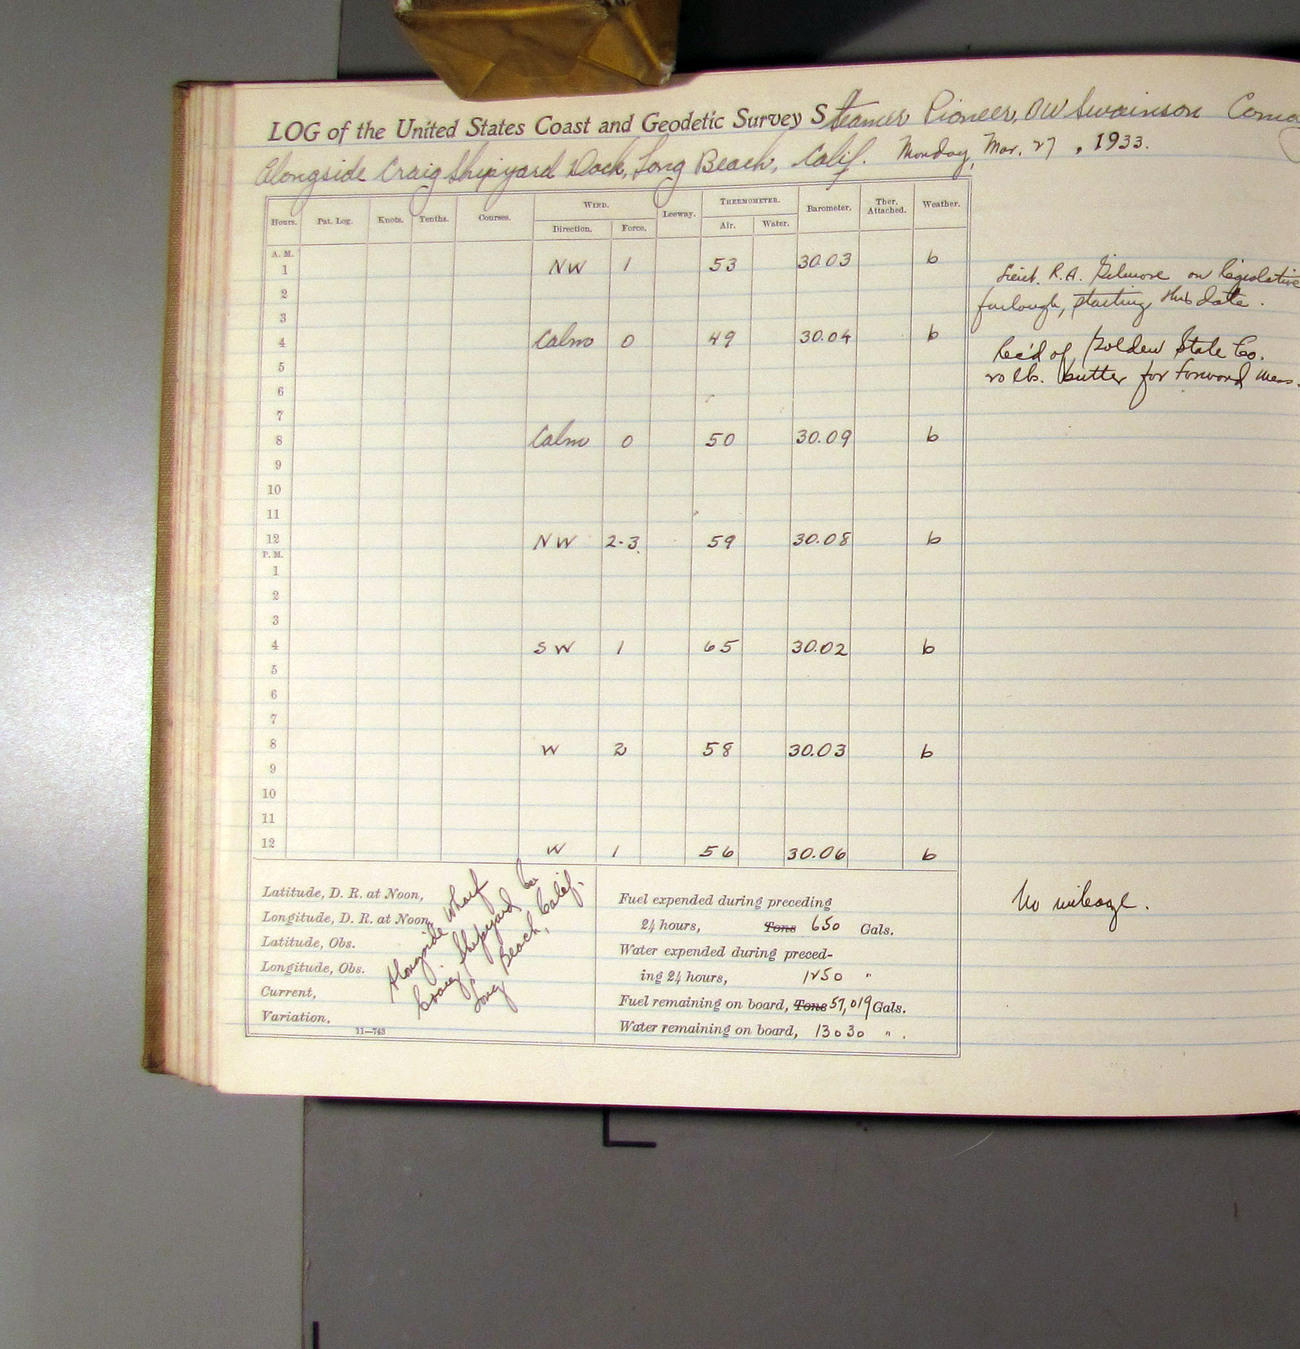 LOG of the United States Coast and Geodetic Survey Steamer Pioneer, OW Swainson
Alongside Craig Shipyard Dock, Long Beach, Calif. Monday, Mar. 27, 1933.
Hours. Pat. Log. Knots. Tenths. Courses. WIND. Leeway. THERMOMETER. Barometer. Ther. Attached. Weather.
Direction. Force. Air. Water.
A. M.
1 NW 1 53 30.03 b
2
3
4 Calm 0 49 30.04 b
5
6
7
8 Calm 0 50 30.09 b
9
10
11
12 NW 2-3 59 30.08 b
P. M.
1
2
3
4 SW 1 65 30.02 b
5
6
7
8 W 2 58 30.03 b
9
10
11
12 W 1 56 30.06 b
Lieut. R.A. Gilmore on legislative
furlough, starting this date.
Rec'd of Golden State Co.
20 lb. butter for forward mess.
No mileage.
Latitude, D. R. at Noon,
Longitude, D. R. at Noon
Latitude, Obs.
Longitude, Obs.
Current,
Variation,
Alongside Wharf
Craig Shipyard Co.
Long Beach, Calif.
11—763
Fuel expended during preceding
24 hours, Tons 650 Gals.
Water expended during preced-
ing 24 hours, 1250 "
Fuel remaining on board, Tons 57,019 Gals.
Water remaining on board, 13030 " .